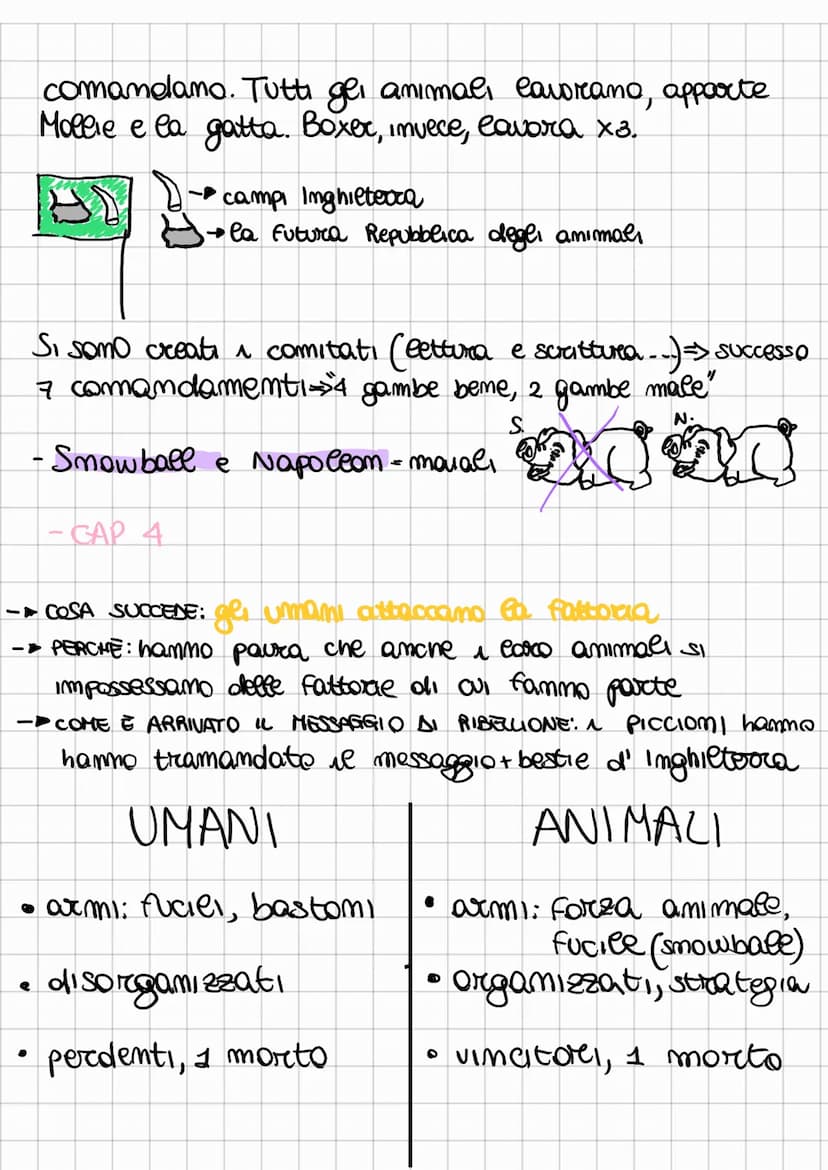 comandano. Tutti gli animali lavorano, apparte
Mollie e la gatta. Boxer, invece, lavora x3.
→ campi Inghilterra
→ la futura Repubblica degli animali
Si sono creati i comitati (lettura e scrittura...) ⇒ successo
7 comandamenti ⇒ "4 gambe bene, 2 gambe male"
- Snowball e Napoleon = maiali
S.
N.
- CAP 4
→ COSA SUCCEDE: gli umani attaccano la fattoria
→ PERCHÈ: hanno paura che anche i loro animali si
impossessano delle fattorie di cui fanno parte
→ COME È ARRIVATO IL MESSAGGIO DI RIBELLIONE: i PICCIONI hanno
hanno tramandato il messaggio + bestie d'Inghilterra
UMANI
• armi: fucili, bastoni
• disorganizzati
• perdenti, 1 morto
ANIMALI
• armi: forza animale,
fucile (snowball)
• organizzati, strategia
• vincitori, 1 morto